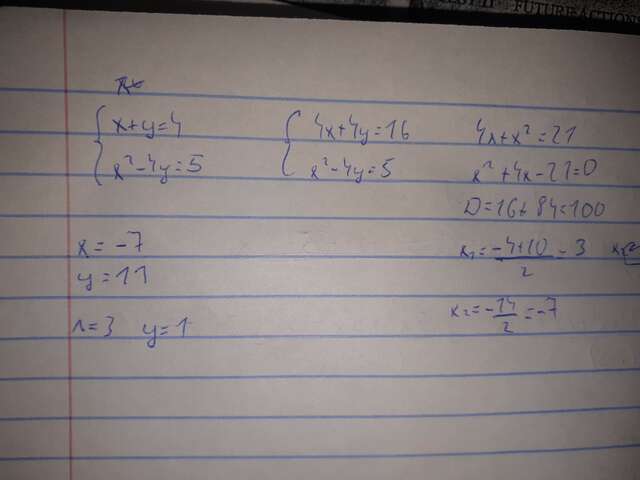 FUTURE ACTION
x+y=4
x²-4y=5
4x+4y=16
x²-4y=5
4x+x²=21
x²+4x-21=0
D=16+84=100
x₁=(-4+10)/2=3
x₂=-14/2=-7
x=-7
y=11
x=3 y=1